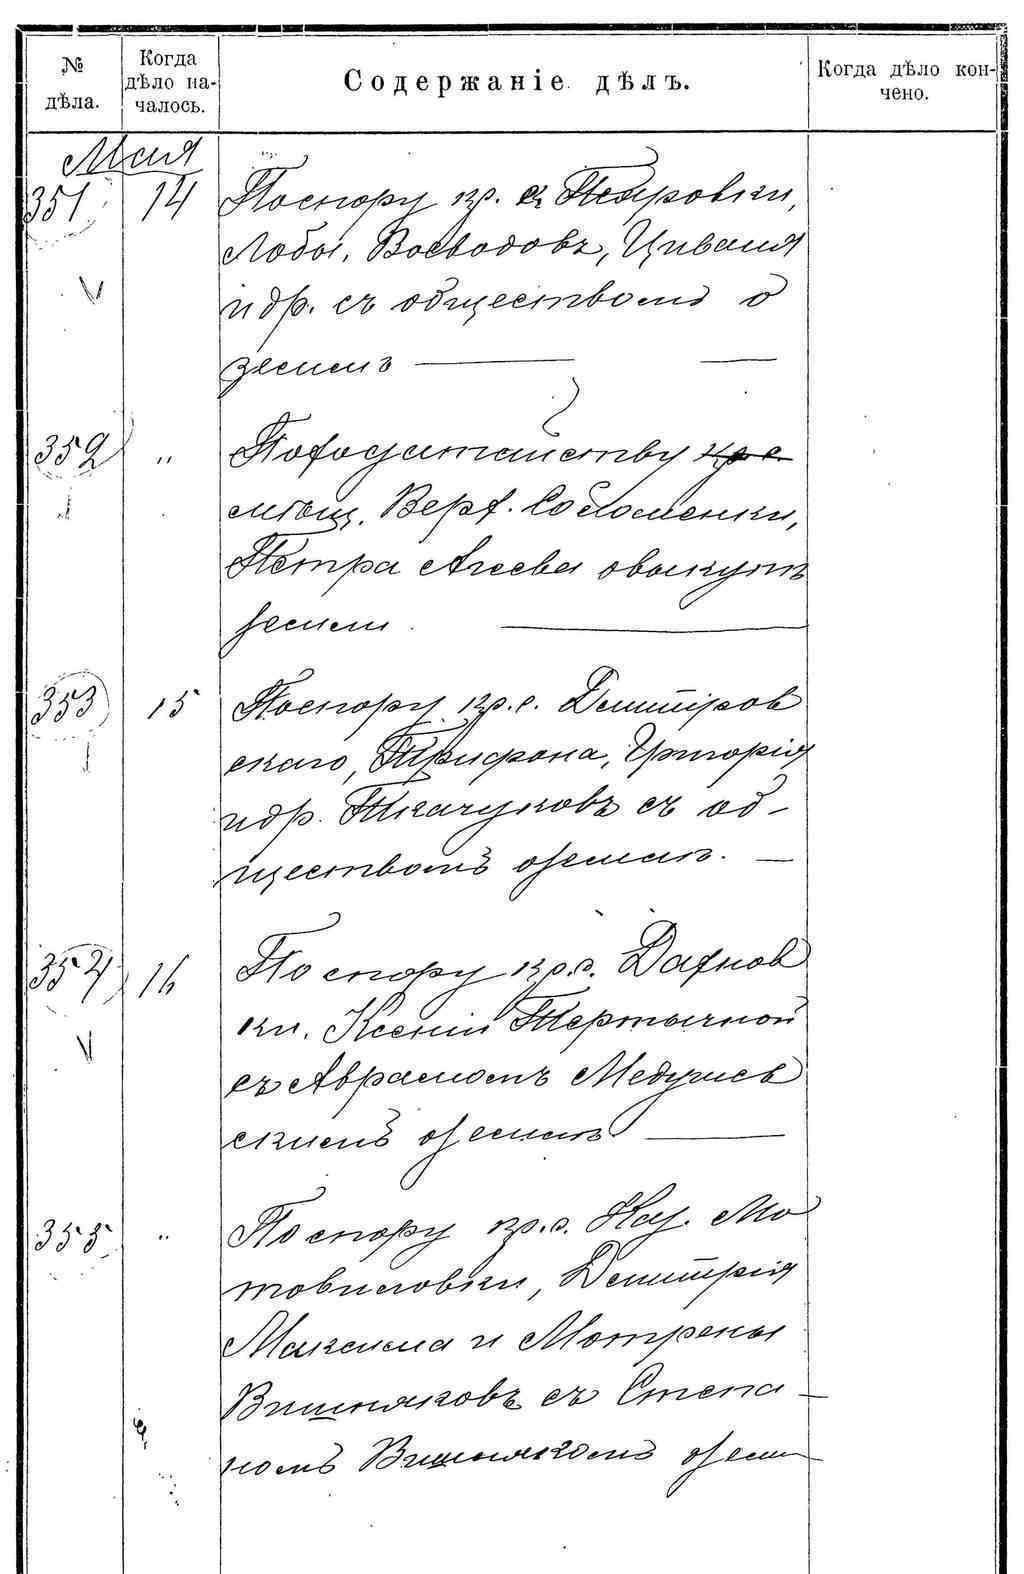 № дѣла.
Когда дѣло началось.
Содержаніе дѣлъ.
Когда дѣло кончено.
Мая
351 14 По спору кр. с. Петровки,
Лобы, Воеводовъ, Циваня
и др. съ обществомъ о
землѣ
352 " По ходатайству кр. с.
мѣщ. Верх. Соломенки,
Петра Агеева о выкупѣ
земли.
353 15 По спору кр. с. Дмитров
скаго, Трифона, Григорія
и др. Ткачуковъ съ об-
ществомъ о землѣ.
354 16 По спору кр. с. Дахнов
ки, Ксеніи Тертычной
съ Аврамомъ Медунов
скимъ о землѣ
355 " По спору кр. с. Каз. Мо
товиловки, Дмитрія
Максима и Мотрены
Вишняковъ съ Степа-
номъ Вишнякомъ о земл